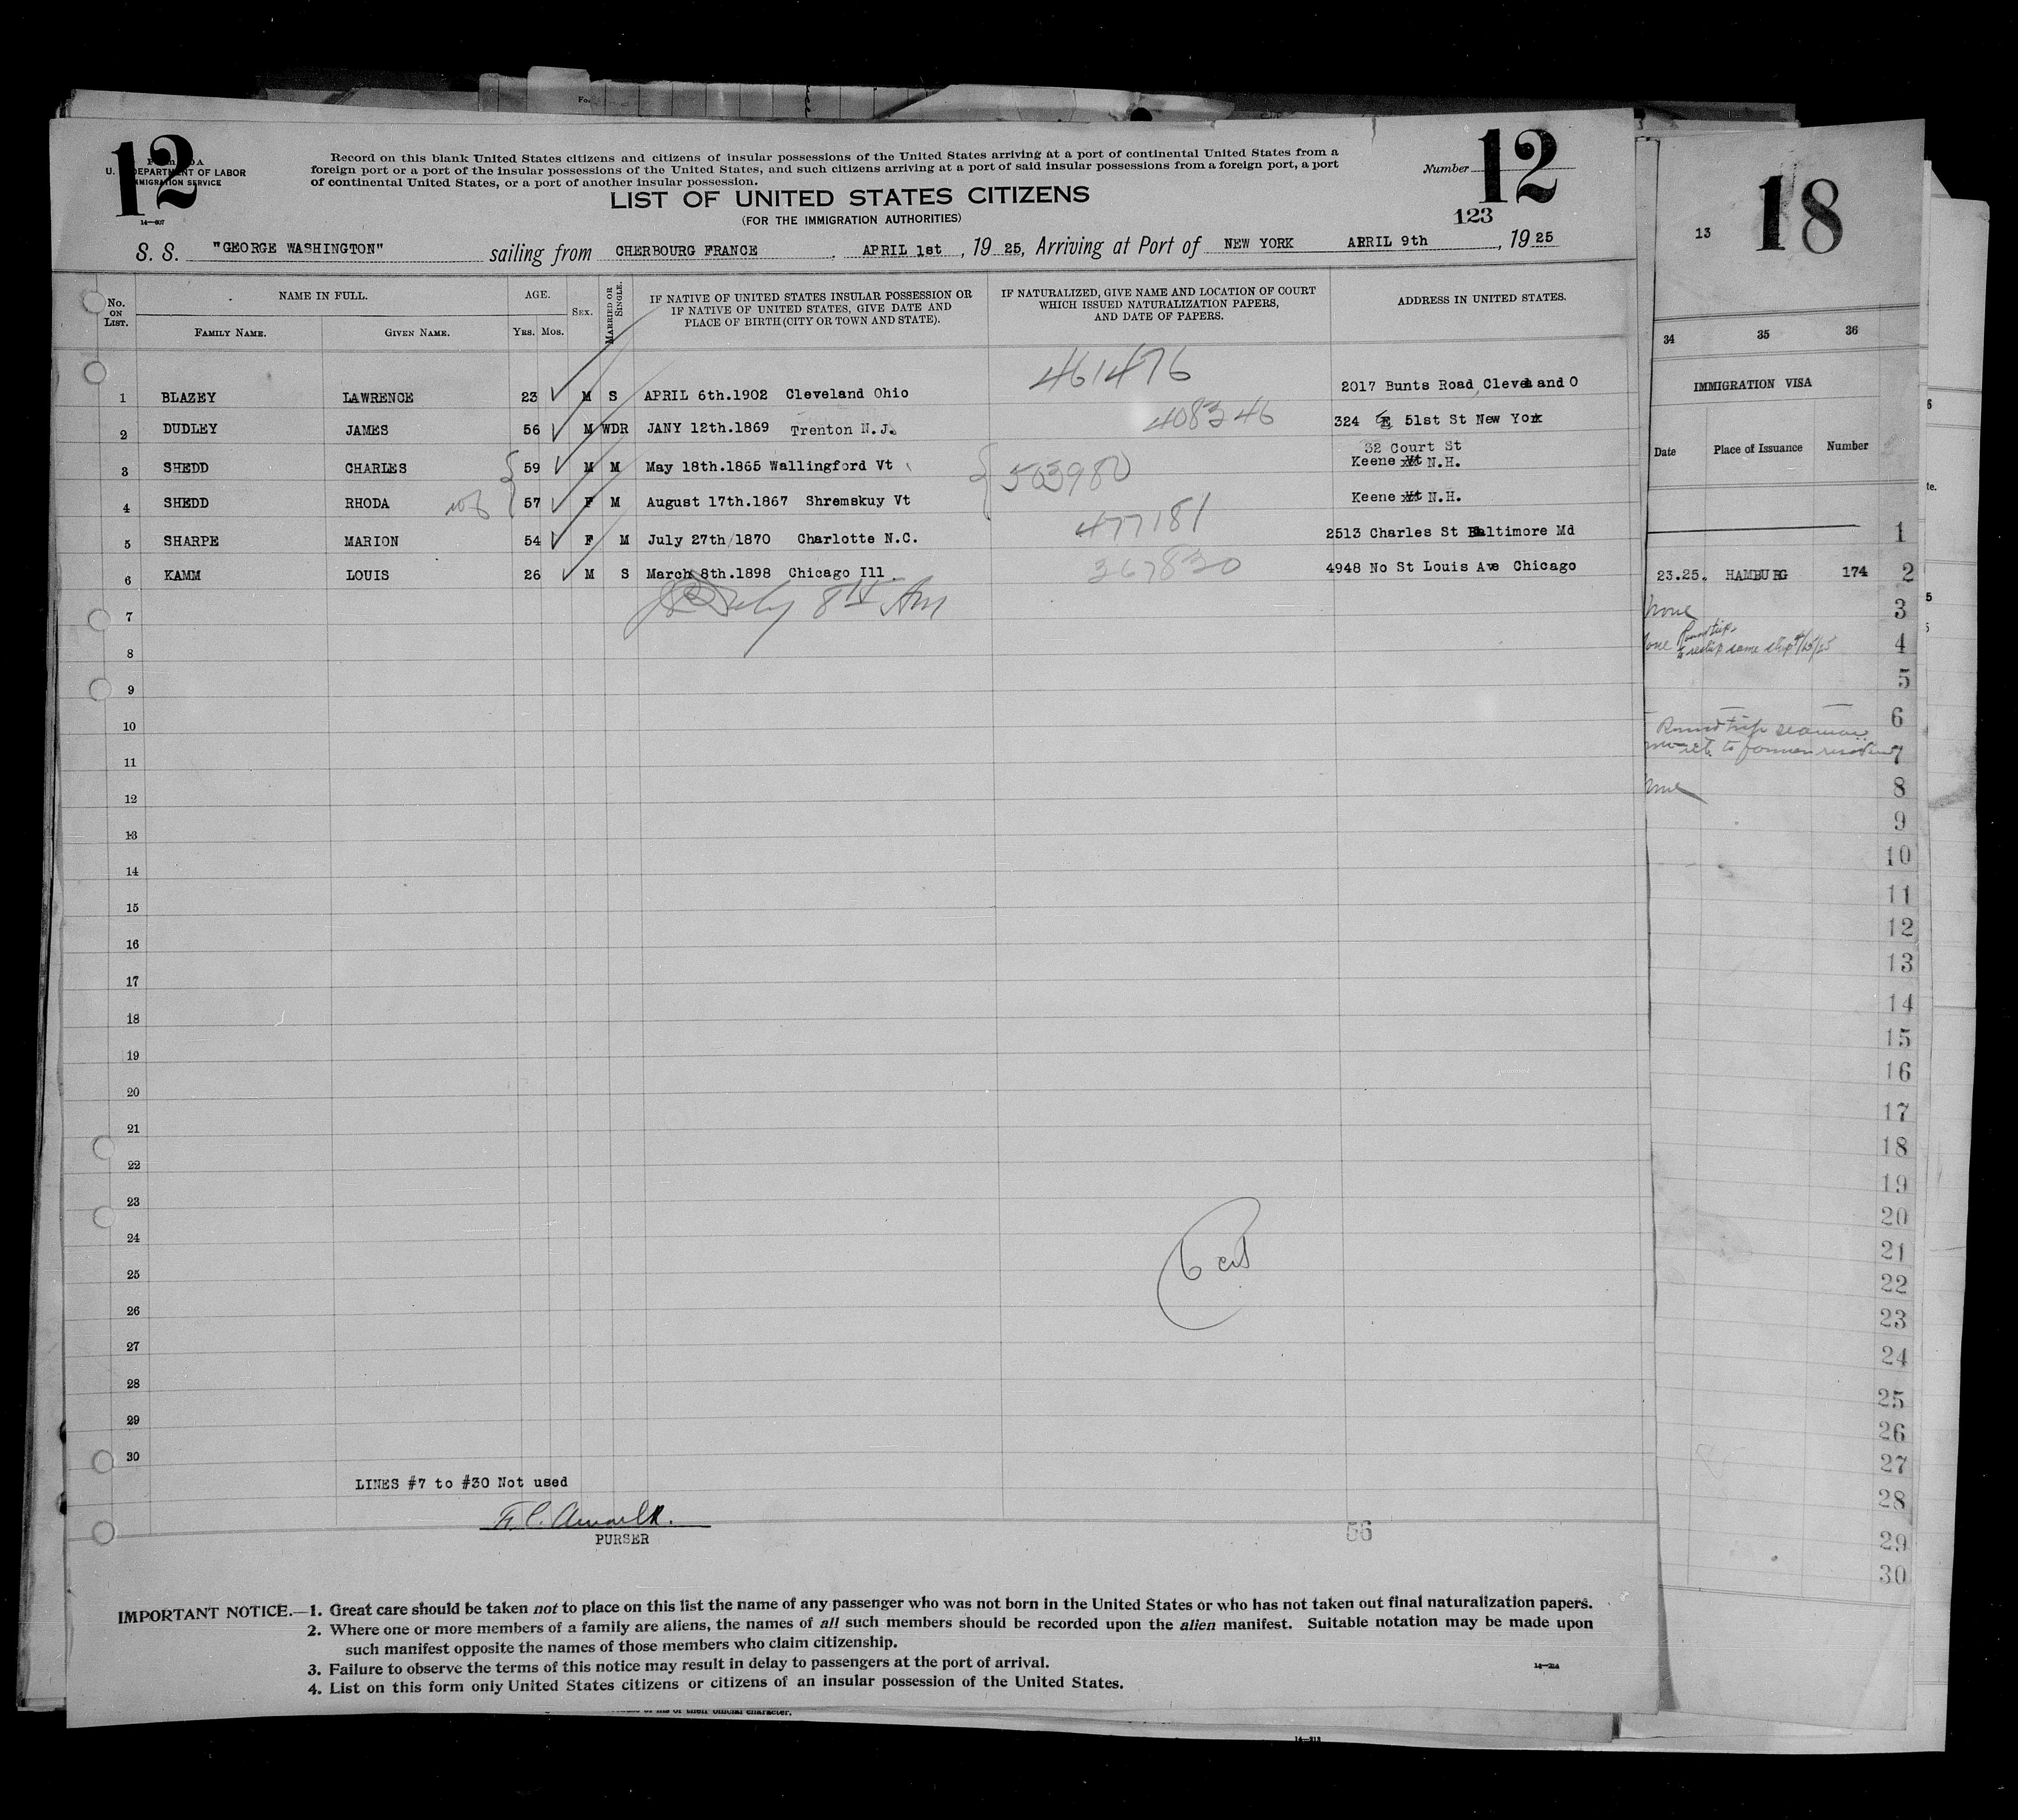 12
Form 630 A
U. S. DEPARTMENT OF LABOR
IMMIGRATION SERVICE
14—607
Record on this blank United States citizens and citizens of insular possessions of the United States arriving at a port of continental United States from a
foreign port or a port of the insular possessions of the United States, and such citizens arriving at a port of said insular possessions from a foreign port, a port
of continental United States, or a port of another insular possession.
Number 12
LIST OF UNITED STATES CITIZENS
(FOR THE IMMIGRATION AUTHORITIES)
123
S. S. "GEORGE WASHINGTON" sailing from CHERBOURG FRANCE , APRIL 1st , 19 25, Arriving at Port of NEW YORK APRIL 9th , 19 25
No. ON LIST. NAME IN FULL. AGE. SEX. MARRIED OR SINGLE. IF NATIVE OF UNITED STATES INSULAR POSSESSION OR IF NATIVE OF UNITED STATES, GIVE DATE AND PLACE OF BIRTH (CITY OR TOWN AND STATE). IF NATURALIZED, GIVE NAME AND LOCATION OF COURT WHICH ISSUED NATURALIZATION PAPERS, AND DATE OF PAPERS. ADDRESS IN UNITED STATES.
FAMILY NAME. GIVEN NAME. YRS. MOS.
1 BLAZEY LAWRENCE 23 M S APRIL 6th.1902 Cleveland Ohio 461476 2017 Bunts Road, Cleveland O
2 DUDLEY JAMES 56 M WDR JANY 12th.1869 Trenton N.J. 408346 324 E 51st St New York
3 SHEDD CHARLES 59 M M May 18th.1865 Wallingford Vt 503980 32 Court St Keene Vt N.H.
4 SHEDD RHODA wf 57 F M August 17th.1867 Shremskuy Vt Keene Vt N.H.
5 SHARPE MARION 54 F M July 27th/1870 Charlotte N.C. 477181 2513 Charles St Baltimore Md
6 KAMM LOUIS 26 M S March 8th.1898 Chicago Ill 367830 4948 No St Louis Ave Chicago
7
8
9
10
11
12
13
14
15
16
17
18
19
20
21
22
23
24
25
26
27
28
29
30
LINES #7 to #30 Not used
PURSER
56
IMPORTANT NOTICE.—1. Great care should be taken not to place on this list the name of any passenger who was not born in the United States or who has not taken out final naturalization papers.
2. Where one or more members of a family are aliens, the names of all such members should be recorded upon the alien manifest. Suitable notation may be made upon
such manifest opposite the names of those members who claim citizenship.
3. Failure to observe the terms of this notice may result in delay to passengers at the port of arrival.
4. List on this form only United States citizens or citizens of an insular possession of the United States.
14—214
13
18
34 35 36
IMMIGRATION VISA
Date Place of Issuance Number
1
23.25. HAMBURG 174 2
none 3
Round trip
same ship 4
5
6
Round trip seaman
to former 7
8
9
10
11
12
13
14
15
16
17
18
19
20
21
22
23
24
25
26
27
28
29
30
of his or their official character.
14—213